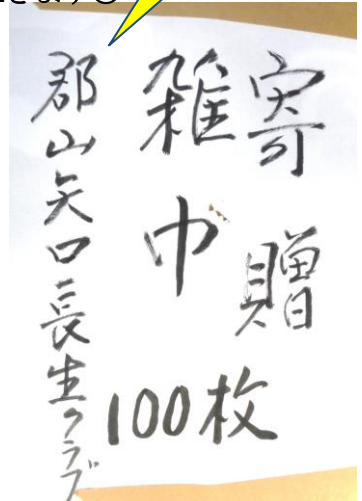 寄贈
雑巾
100枚
郡山矢口長生クラブ